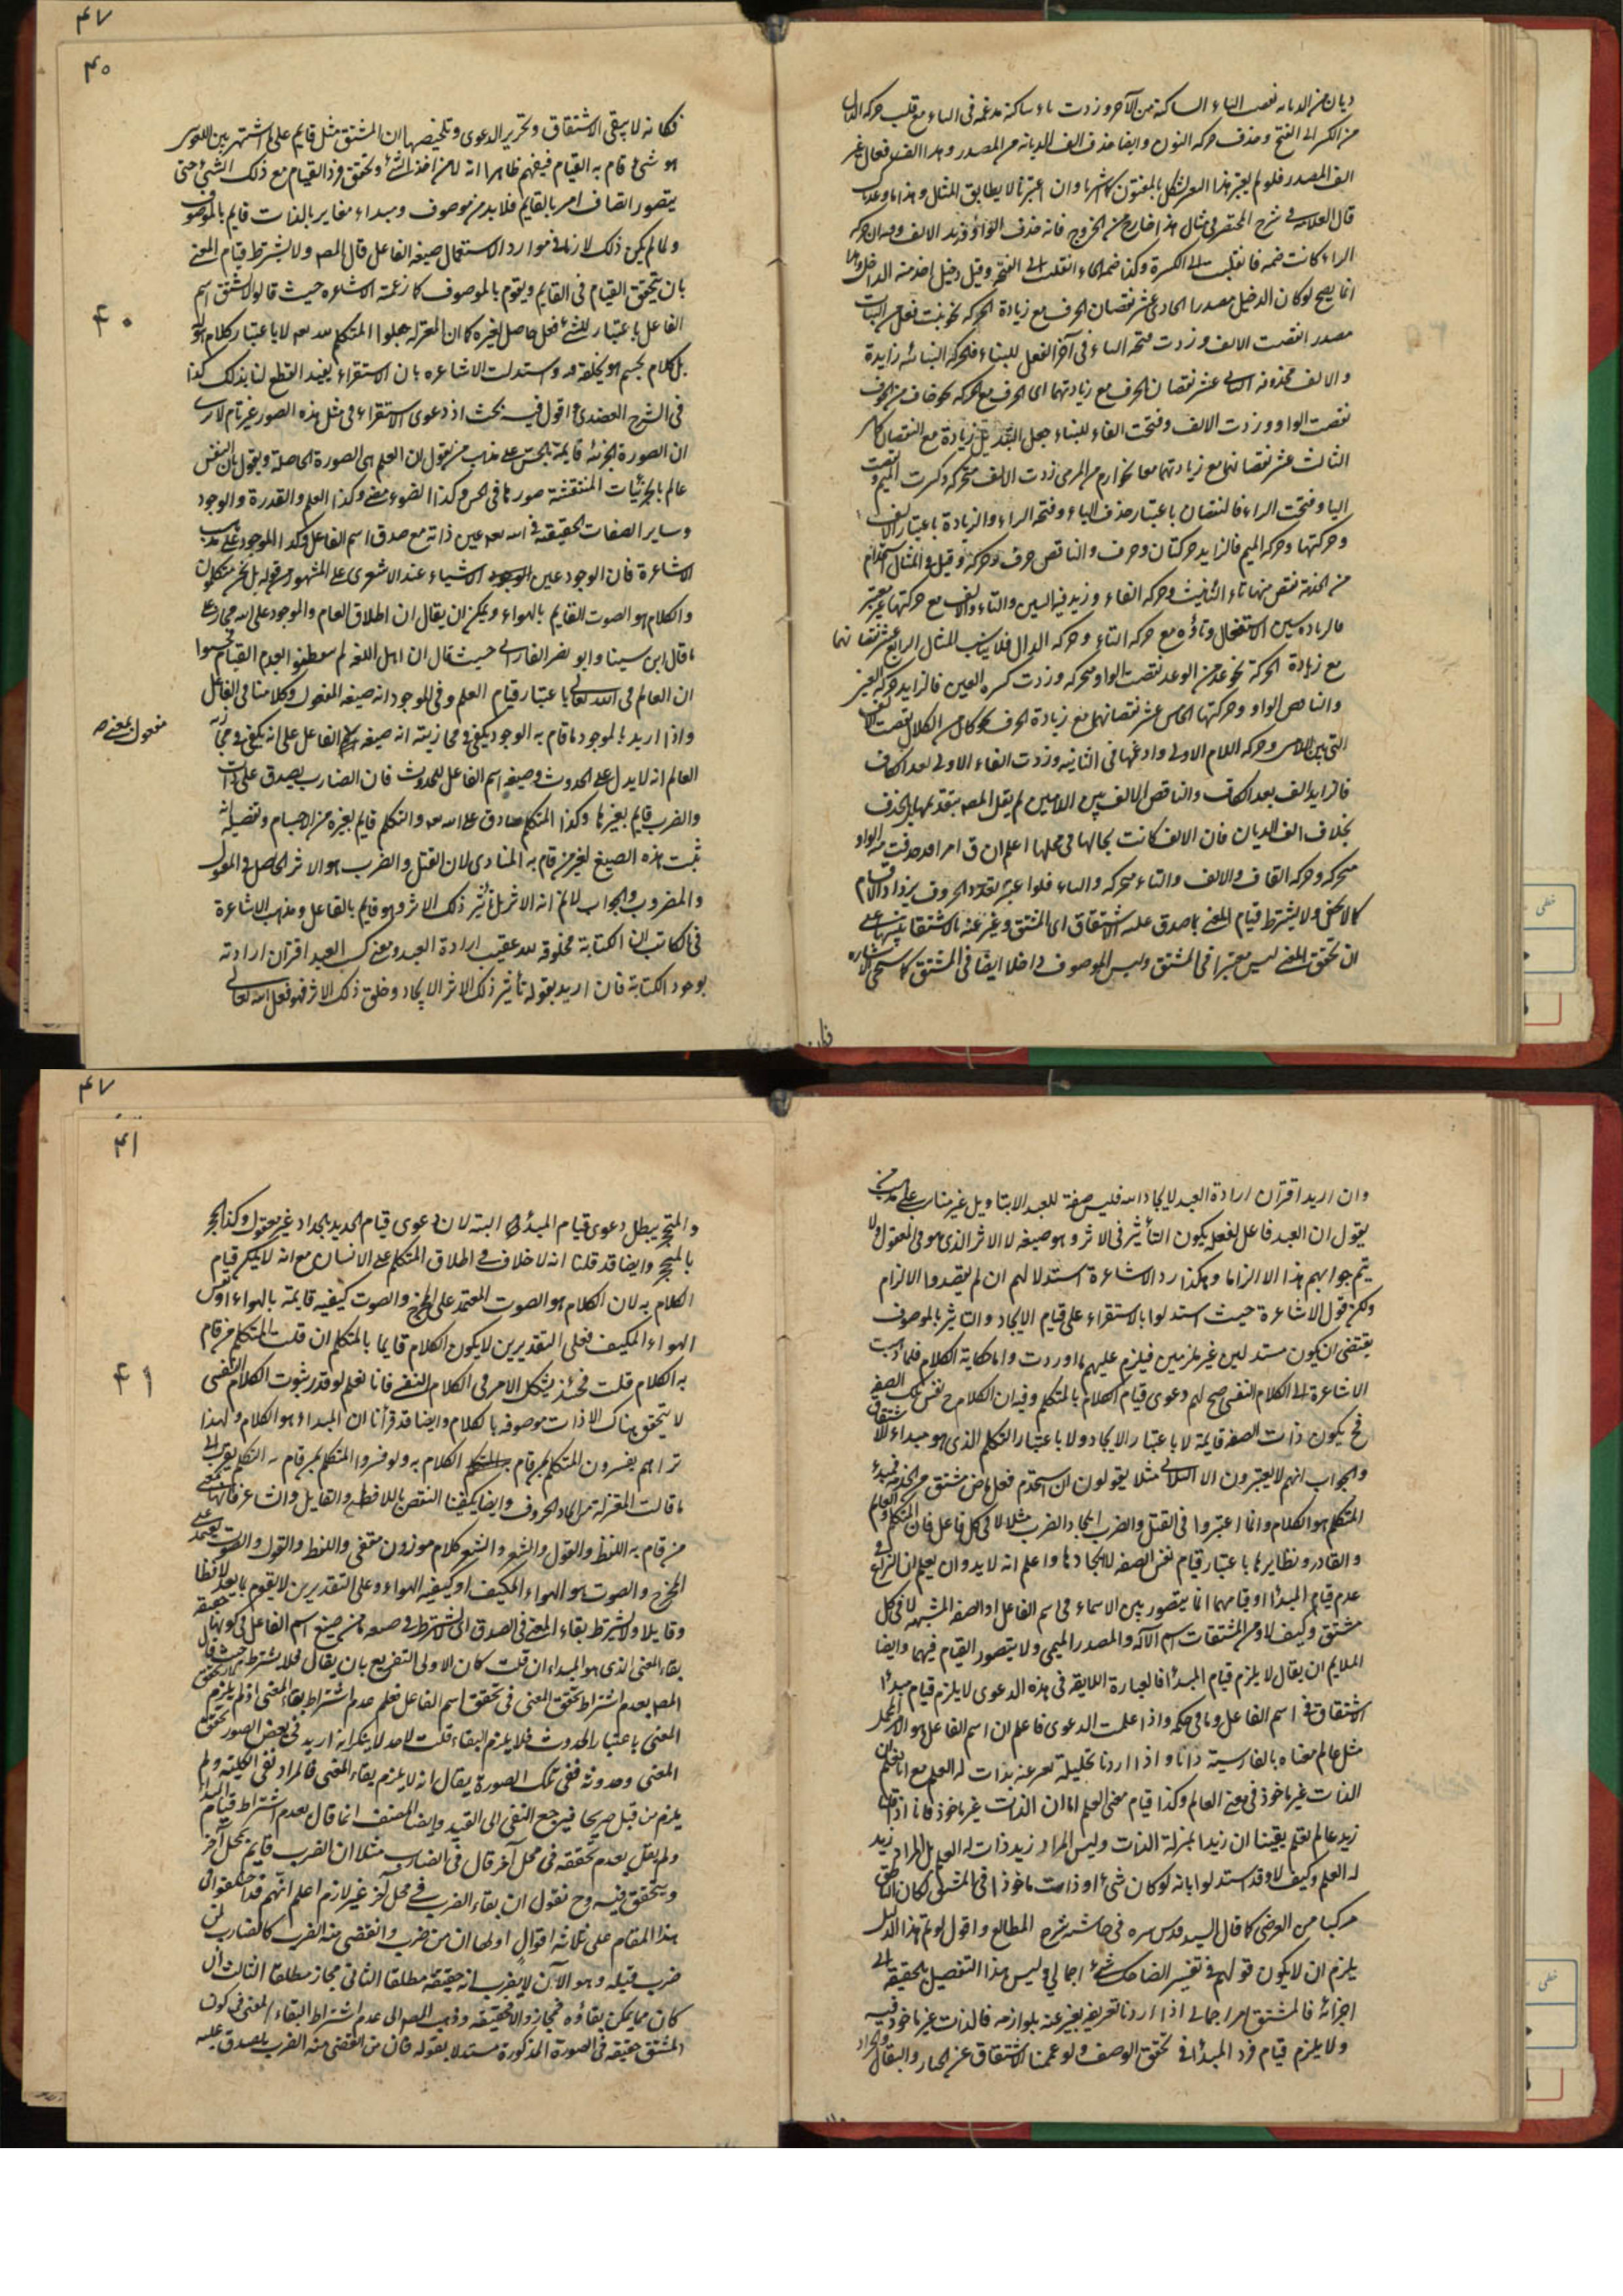 من الكسر الى الفتح وحذف حركه النون وايضا حذف الف الديانه من المصدر
الف المصدر فلو لم يعتبر هذا وان اعتبر نا لا يطابق المثال
قال العلامه فى شرح المختصر فى مثال هذا
الراء كانت ضمه فانقلبت الى الكسرة وكذا ضمه الخاء انقلبت الى الفتحه وقيل دخيل اخذ منه الداخل
انما يصح لو كان الدخيل مصدرا الحادى عشر نقصان الحرف مع زيادة الحركه نحو نبت فعل من النبات
مصدر انقصت الالف وزدت فتحه التاء فى آخر الفعل للبناء فالحركه البنائيه زايدة
والالف محذوفه الثانى عشر نقصان الحرف مع زيادتهما اى الحرف مع الحركه نحو خاف من الخوف
نقصت الواو وزدت الالف وفتحت الفاء للبناء جعل التبديل زيادة مع النقصان كما مر
الثالث عشر نقصانهما مع زيادتهما معا نحو ارم من الرمى زدت الالف متحركه وكسرت الميم ونقصت
الياء وفتحت الراء فالنقصان باعتبار حذف الياء وفتحه الراء والزيادة باعتبار الالف
وحركتها وحركه الميم فالزايد حركتان وحرف والناقص حرف وحركة وقيل فى المثال استخدام
من الخدمة نقص منها تاء التأنيث وحركه الفاء وزيد فيه السين والتاء والالف مع حركتها غير معتبر
مع زيادة الحركة نحو عد من الوعد نقصت الواو متحركه وزدت كسره العين فالزايد حركه العين
والناقص الواو وحركتها الخامس عشر نقصانهما مع زيادة الحرف نحو كال من الكلال نقصت الالف
التى بين اللامين وحركه اللام الاولى وادغمها فى الثانيه وزدت الفاء الاولى بعد الكاف
فالزايد الف بعد الكاف والناقص الالف بين اللامين لم يقل المصه بتقديمها بل بحذف
بخلاف الف الديان فان الالف كانت بحالها فى محلها اعلم ان ق امرا قد حذفت منه الواو
متحركه وحركه القاف والالف والتاء متحركه والياء فلو اعتبر تعدد الحروف يزداد الاقسام
كما لا يخفى ولا يشترط قيام المعنى بما صدق عليه الاشتقاق اى المشتق
ان تحقق المعنى ليس معتبرا فى المشتق وليس الموصوف داخلا ايضا فى المشتق كما سيجئ
۴۷
۴۰
فكانه لا يبقى الاشتقاق وتحرير الدعوى وتلخيصها ان المشتق مثل قايم على ما اشتهر بين اللغويين
هو شئ قام به القيام فيفهم ظاهرا انه لا بد من اخذ الشئ وتحقق فرد القيام مع ذلك الشئ حتى
يتصور اتصاف امر بالقايم فلا بد من موصوف ومبداء مغاير بالذات قايم بالموصوف
ولما لم يكن ذلك لازما فى موارد الاستعمال صيغه الفاعل قال المصه ولا يشترط قيام المعنى
بان يتحقق القيام فى القايم ويقوم بالموصوف كما زعمته الاشاعره حيث قالوا لا يشتق اسم
الفاعل باعتبار للشئ فعل حاصل لغيره كما ان المعتزله جعلوا المتكلم لله تعه لا باعتبار كلام هو له
بل كلام لجسم هو يخلقه فيه واستدلت الاشاعره بان الاستقراء يفيد القطع لنا بذلك كذا
فى الشرح العضدى اقول فيه بحث اذ دعوى الاستقراء فى مثل هذه الصور غير تام لا ترى
ان الصورة الجزئيه قايمة بالحس على مذهب من يقول ان العلم هى الصورة الحاصله ويقول بان النفس
عالم بالجزئيات المنتقشة صورها فى الحس وكذا الضوء مضئ وكذا العلم والقدرة والوجود
وساير الصفات الحقيقيه فى الله تعه عين ذاته مع صدق اسم الفاعل وكذا الموجود على مذهب
الاشاعرة فان الوجود عين الاشياء عند الاشعرى على المشهور
والكلام هو الصوت القايم بالهواء ويمكن ان يقال ان اطلاق العام والموجود على الله مجاز على
ما قال ابن سينا وابو نصر الفارابى حيث قال ان اهل اللغه لم يتفطنوا لعدم القيام
ان العالم فى الله تعالى باعتبار قيام العلم وفى الموجود انه صيغه المفعول وكلامنا فى الفاعل
واذا اريد بالموجود ما قام به الوجود يكفى فى مجازيته انه صيغه الفاعل على انه يكفى فى مجازيه
مفعول بمعنى
العالم انه لا يدل على الحدوث وصيغه اسم الفاعل للحدوث فان الضارب يصدق على ذات
والضرب قايم بغيرها وكذا المتكلم صادق على الله تعه والتكلم قايم بغيره من الاجسام وتفصيله انه
ثبت هذه الصيغ لغير من قام به المنادى لان القتل والضرب هو الاثر الحاصل فى المقتول
والمضروب والجواب لا نم انه الاثر بل تأثير ذلك الاثر وهو قايم بالفاعل ومذهب الاشاعرة
فى الكاتب ان الكتابة مخلوقه لله عقيب ارادة العبد ومعنى كسب العبد اقتران ارادته
بوجود الكتابة فان اريد بقوله تأثير ذلك الاثر الايجاد وخلق ذلك الاثر فهو فعل الله تعالى
۴۰
وان اريد اقتران ارادة العبد لايجاد الله فليس صفة للعبد الا بتاويل غير مناسب على مذهب من
يقول ان العبد فاعل لفعله يكون التأثير فى الاثر وهو صيغه لا الاثر الذى هو فى المفعول ولا
يتم جوابهم هذا الا الزاما وهكذا رد الاشاعرة استدلالهم ان لم يقصدوا الالزام
ولكن قول الاشاعرة حيث استدلوا بالاستقراء على قيام الايجاد والتأثير بالموصوف
يقتضى ان يكون مستدلين غير ملزمين فيلزم عليهم ما اوردت واما حكاية الكلام فلما ذهبت
الاشاعرة الى الكلام النفسى صح لهم دعوى قيام الكلام بالمتكلم وفيه ان الكلام ح نفس تلك الصفه
فح يكون ذات الصفه قايمة لا باعتبار الايجاد ولا باعتبار التكلم الذى هو مبداء للاشتقاق
والجواب انهم لا يعتبرون الا الثلاثى مثلا يقولون ان استخدم فعل ماض مشتق من الخدمه فمبدء
المتكلم هو الكلام وانما اعتبروا فى القتل والضرب ايجاد الضرب مثلا لا فى كل فاعل فان المتكلم والعالم
والقادر ونظايرها باعتبار قيام نفس الصفه لا ايجادها واعلم انه لا بد وان يعلم ان النزاع فى
عدم قيام المبدأ او قيامهما انما يتصور بين الاسماء فى اسم الفاعل او الصفه المشبهه لا فى كل
مشتق وكيف لا ومن المشتقات اسم الآله والمصدر الميمى ولا يتصور القيام فيهما وايضا
الملايم ان يقال لا يلزم قيام المبدأ فالعبارة اللايقه فى هذه الدعوى لا يلزم قيام مبدأ
الاشتقاق فى اسم الفاعل وما فى حكمه واذا علمت الدعوى فاعلم ان اسم الفاعل هو الامر المجمل
مثل عالم معناه بالفارسية دانا واذا اردنا تحليله نعبر عنه بذات له العلم مع انا نعلم ان
الذات غير ماخوذ فى معنى العالم وكذا قيام معنى العلم اما ان الذات غير ماخوذ فانا اذا قلنا
زيد عالم نعلم يقينا ان زيدا بمنزلة الذات وليس المراد زيد ذات له العلم بل المراد زيد
له العلم وكيف لا وقد استدلوا بانه لو كان شئ او ذات ماخوذا فى المشتق لكان الناطق
مركبا من العرضى كما قال السيد قدس سره فى حاشيه شرح المطالع واقول لو تم هذا الدليل
يلزم ان لا يكون قولهم فى تفسير الضاحك شئ اجمالى وليس هذا التفصيل بالحقيقه الى
اجزائه فالمشتق امر اجمالى اذا اردنا تعريفه يعبر عنه بلوازمه فالذات غير ماخوذ فيه
ولا يلزم قيام فرد المبدأ فى تحقق الوصف ولو عممنا الاشتقاق عن الحدار والبقال والحداد
۴۷
۴۱
والمتجر يبطل دعوى قيام المبدأ البته لان دعوى قيام الحديد بالحداد غير معقول وكذا الحجر
بالمتحجر وايضا قد قلنا انه لا خلاف فى اطلاق المتكلم على الانسان مع انه لا يمكن قيام
الكلام به لان الكلام هو الصوت المعتمد على المخرج والصوت كيفيه قايمة بالهواء او نفس
الهواء المكيف فعلى التقديرين لا يكون الكلام قايما بالمتكلم ان قلت المتكلم من قام
به الكلام قلت فحينئذ يشكل الامر فى الكلام النفسى فانا نعلم لو قدر ثبوت الكلام النفسى
لا يتحقق هناك الا ذات موصوفه بالكلام وايضا قد قرأنا ان المبداء هو الكلام ولهذا
تراهم يفسرون المتكلم بمن قام الكلام به ولو فسروا المتكلم بمن قام به التكلم يقرب الى
ما قالت المعتزله من ايجاد الحروف وايضا يكفينا النقض باللافظ والقايل والشاعر فانها بمعنى
من قام به اللفظ والقول والشعر والشعر كلام موزون مقفى واللفظ والقول والصوت يعتمد على
المخرج والصوت هو الهواء المكيف او كيفيه الهواء وعلى التقديرين لا يقوم بما يعد لافظا
وقايلا ولا يشترط بقاء المعنى فى الصدق اى لا يشترط فى صدق ما من صيغ اسم الفاعل فى كونها حقيقه
بقاء المعنى الذى هو المبداء ان قلت كان الاولى التفريع بان يقال فلا يشترط حيث قال
المصه بعدم اشتراط تحقق المعنى فى تحقق اسم الفاعل فعلم عدم اشتراط بقاء المعنى اذ لم يلزم تحقق
المعنى باعتبار الحدوث فلا يلزم البقاء قلت لاحد لا ينكر انه اريد فى بعض الصور تحقق
المعنى وحدوثه ففى تلك الصورة يقال انه لا يلزم بقاء المعنى فالمراد نفى الكليه ولم
يلزم من قبل صريحا فيرجع النفى الى القيد وايضا المصنف انما قال بعدم اشتراط قيام المبدأ
ولم يقل بعدم تحققه فى محل آخر قال فى الضارب مثلا ان الضرب قايم بمحل آخر
ويتحقق فيه وح نقول ان بقاء الضرب فى محل آخر غير لازم اعلم انهم قد اختلفوا فى
هذا المقام على ثلاثه اقوال اولها ان من ضرب وانقضى منه الضرب كالضارب لمن
ضرب قبله وهو الآن لا يضرب انه حقيقة مطلقا الثانى مجاز مطلقا الثالث ان
كان مما يمكن بقاؤه فمجاز والا فحقيقه وذهب المصه الى عدم اشتراط البقاء المعنى فى كون
المشتق حقيقه فى الصورة المذكورة مستدلا بقوله فان من انقضى منه الضرب يصدق عليه
۴۱